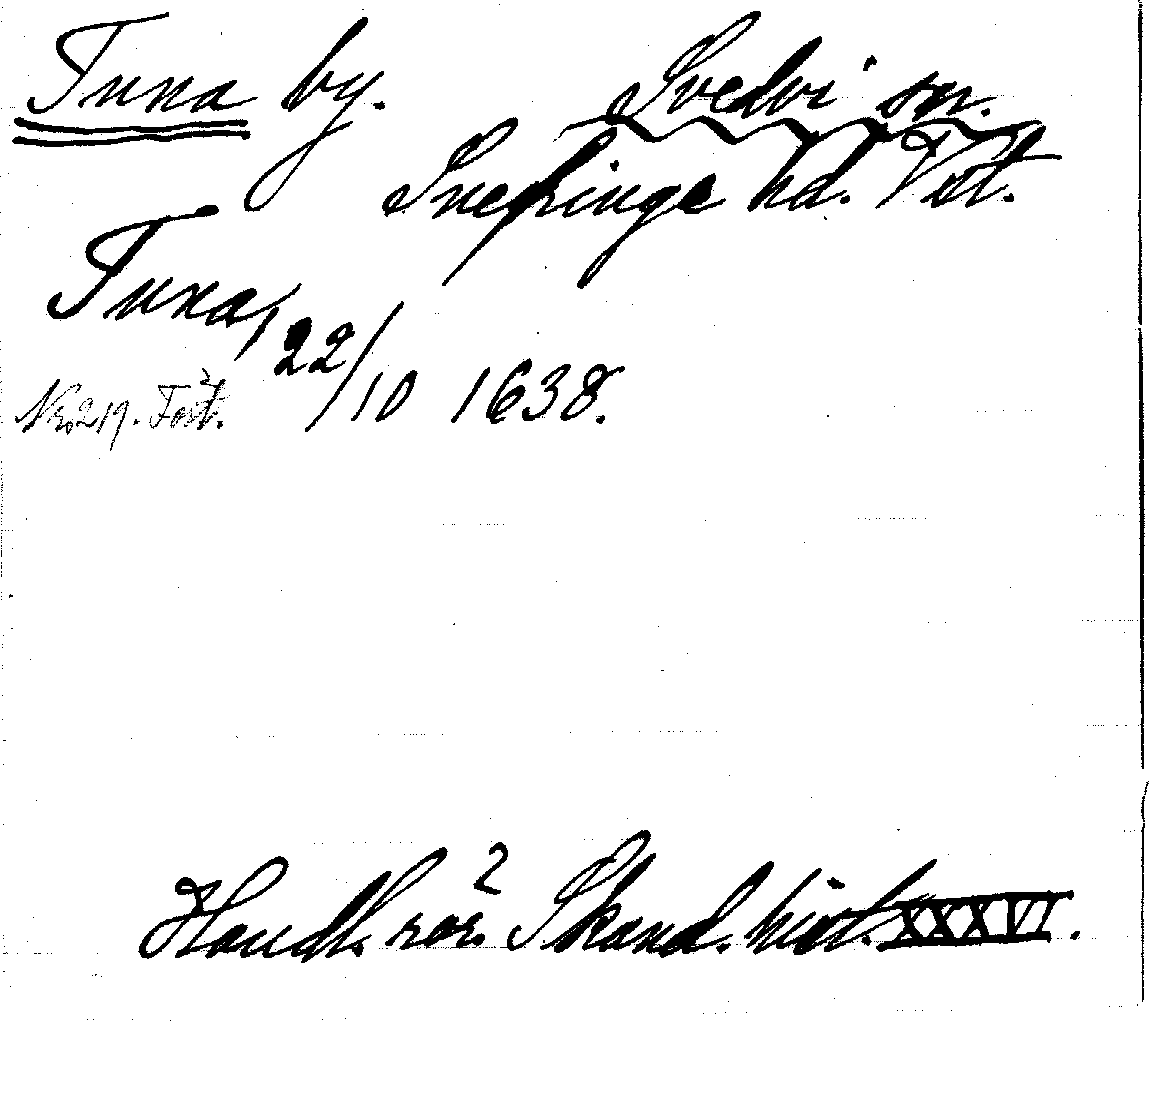 Tuna by. Svedvi sn.
Snefringe hd. Vstl.
Tuna, 22/10 1638.
Nr. 219.
Handl. rör. Skand. hist. XXXVI.